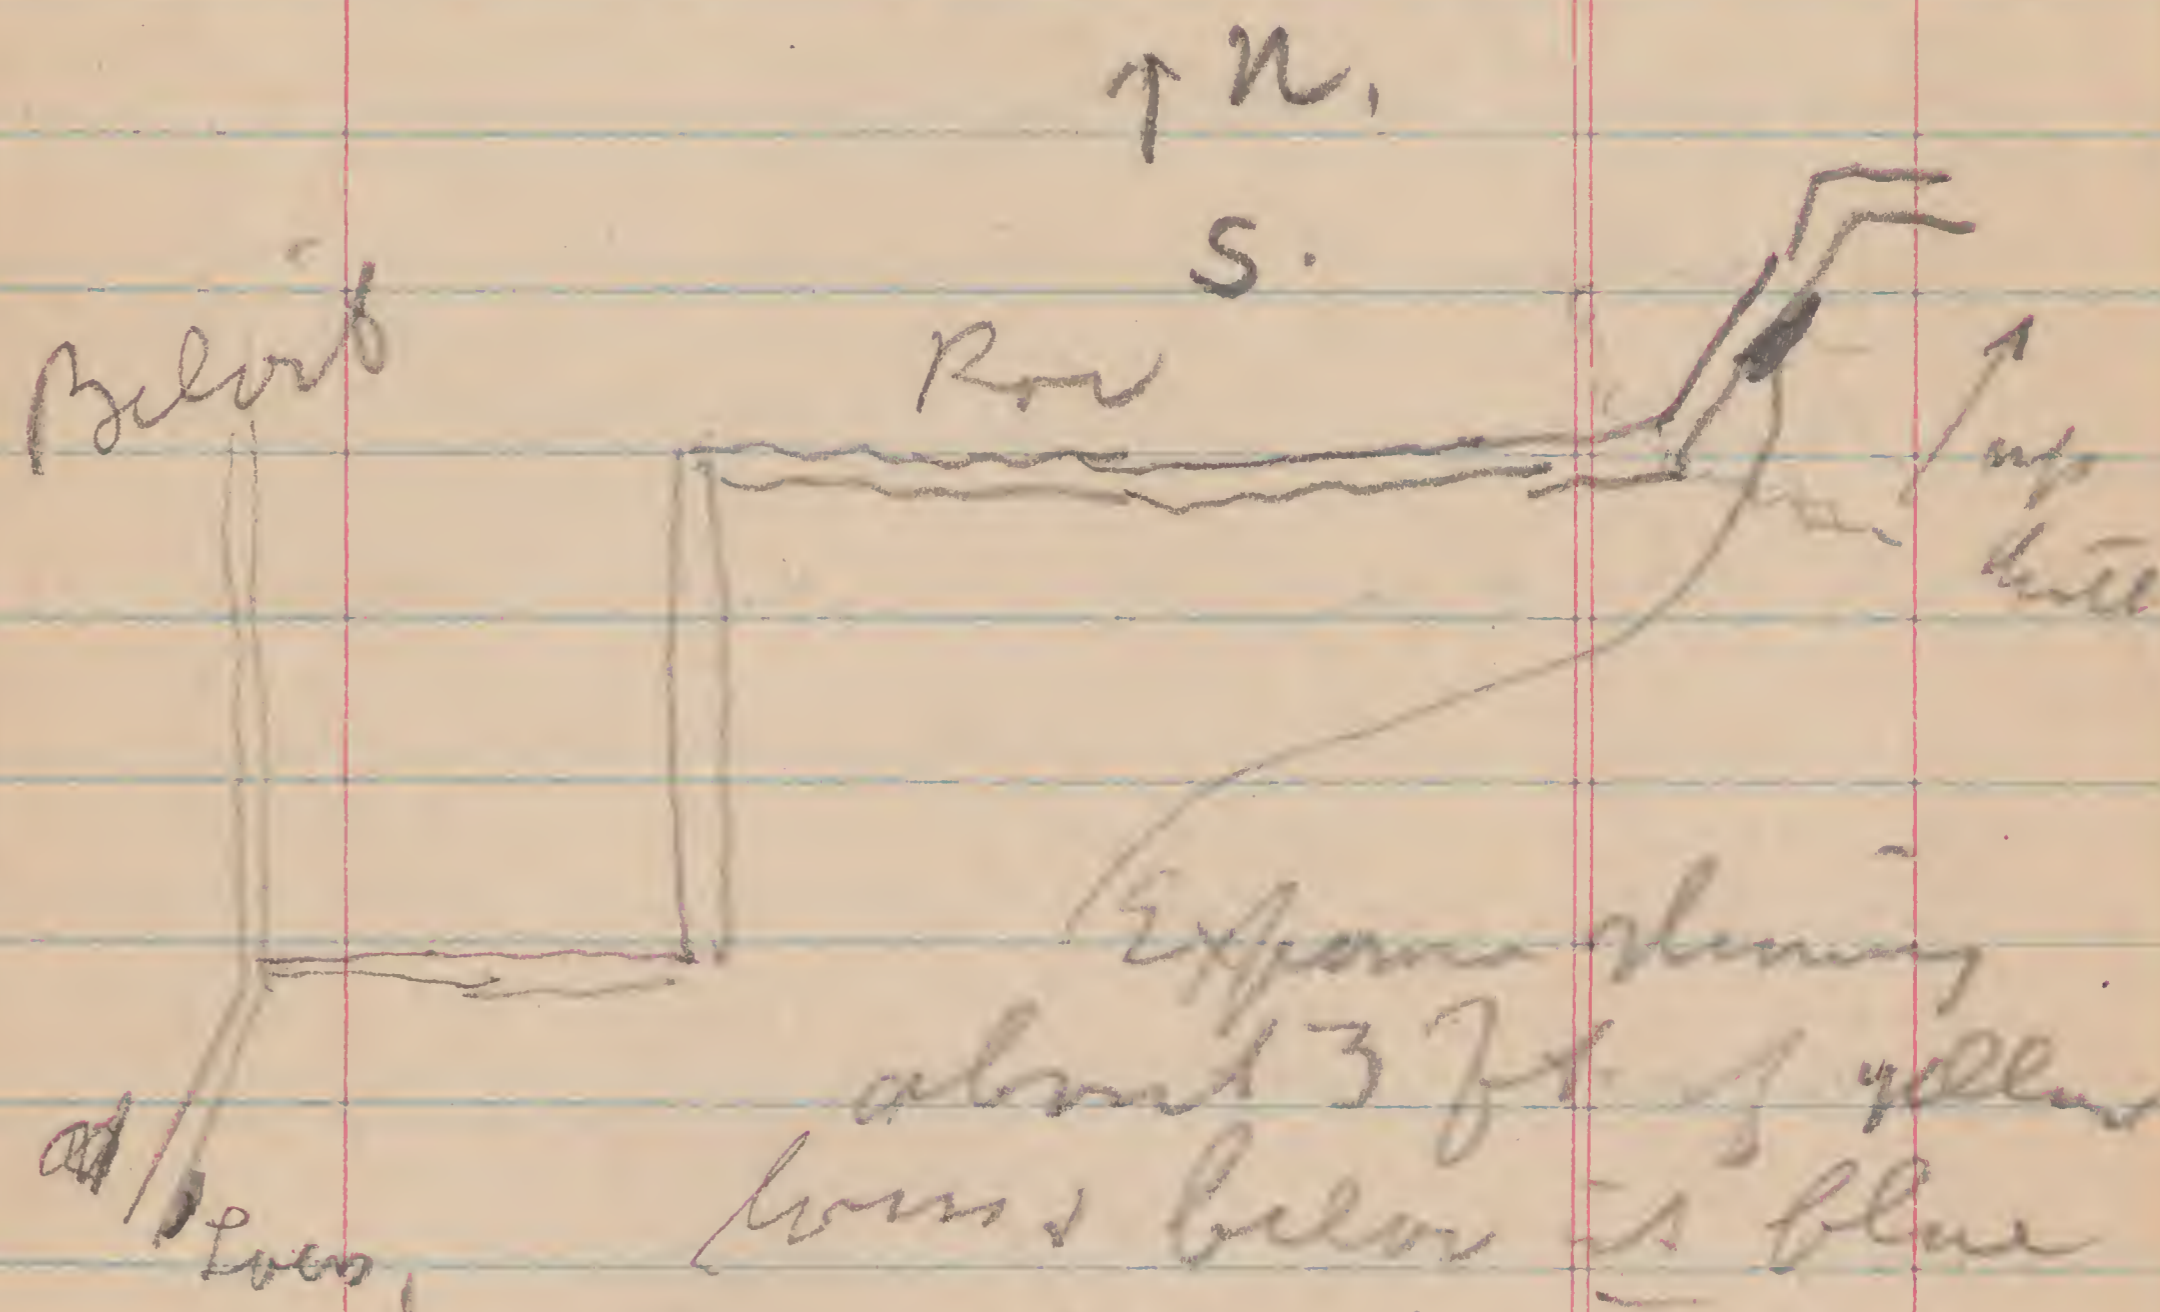 ↑ N.
S.
Beloit
up
hill
Exposure showing
about 3 ft of yellow
loess & below is blue
Loess,